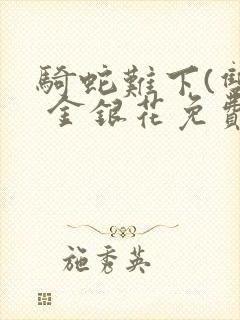 騎蛇難下(雙
金銀花免費
施秀英